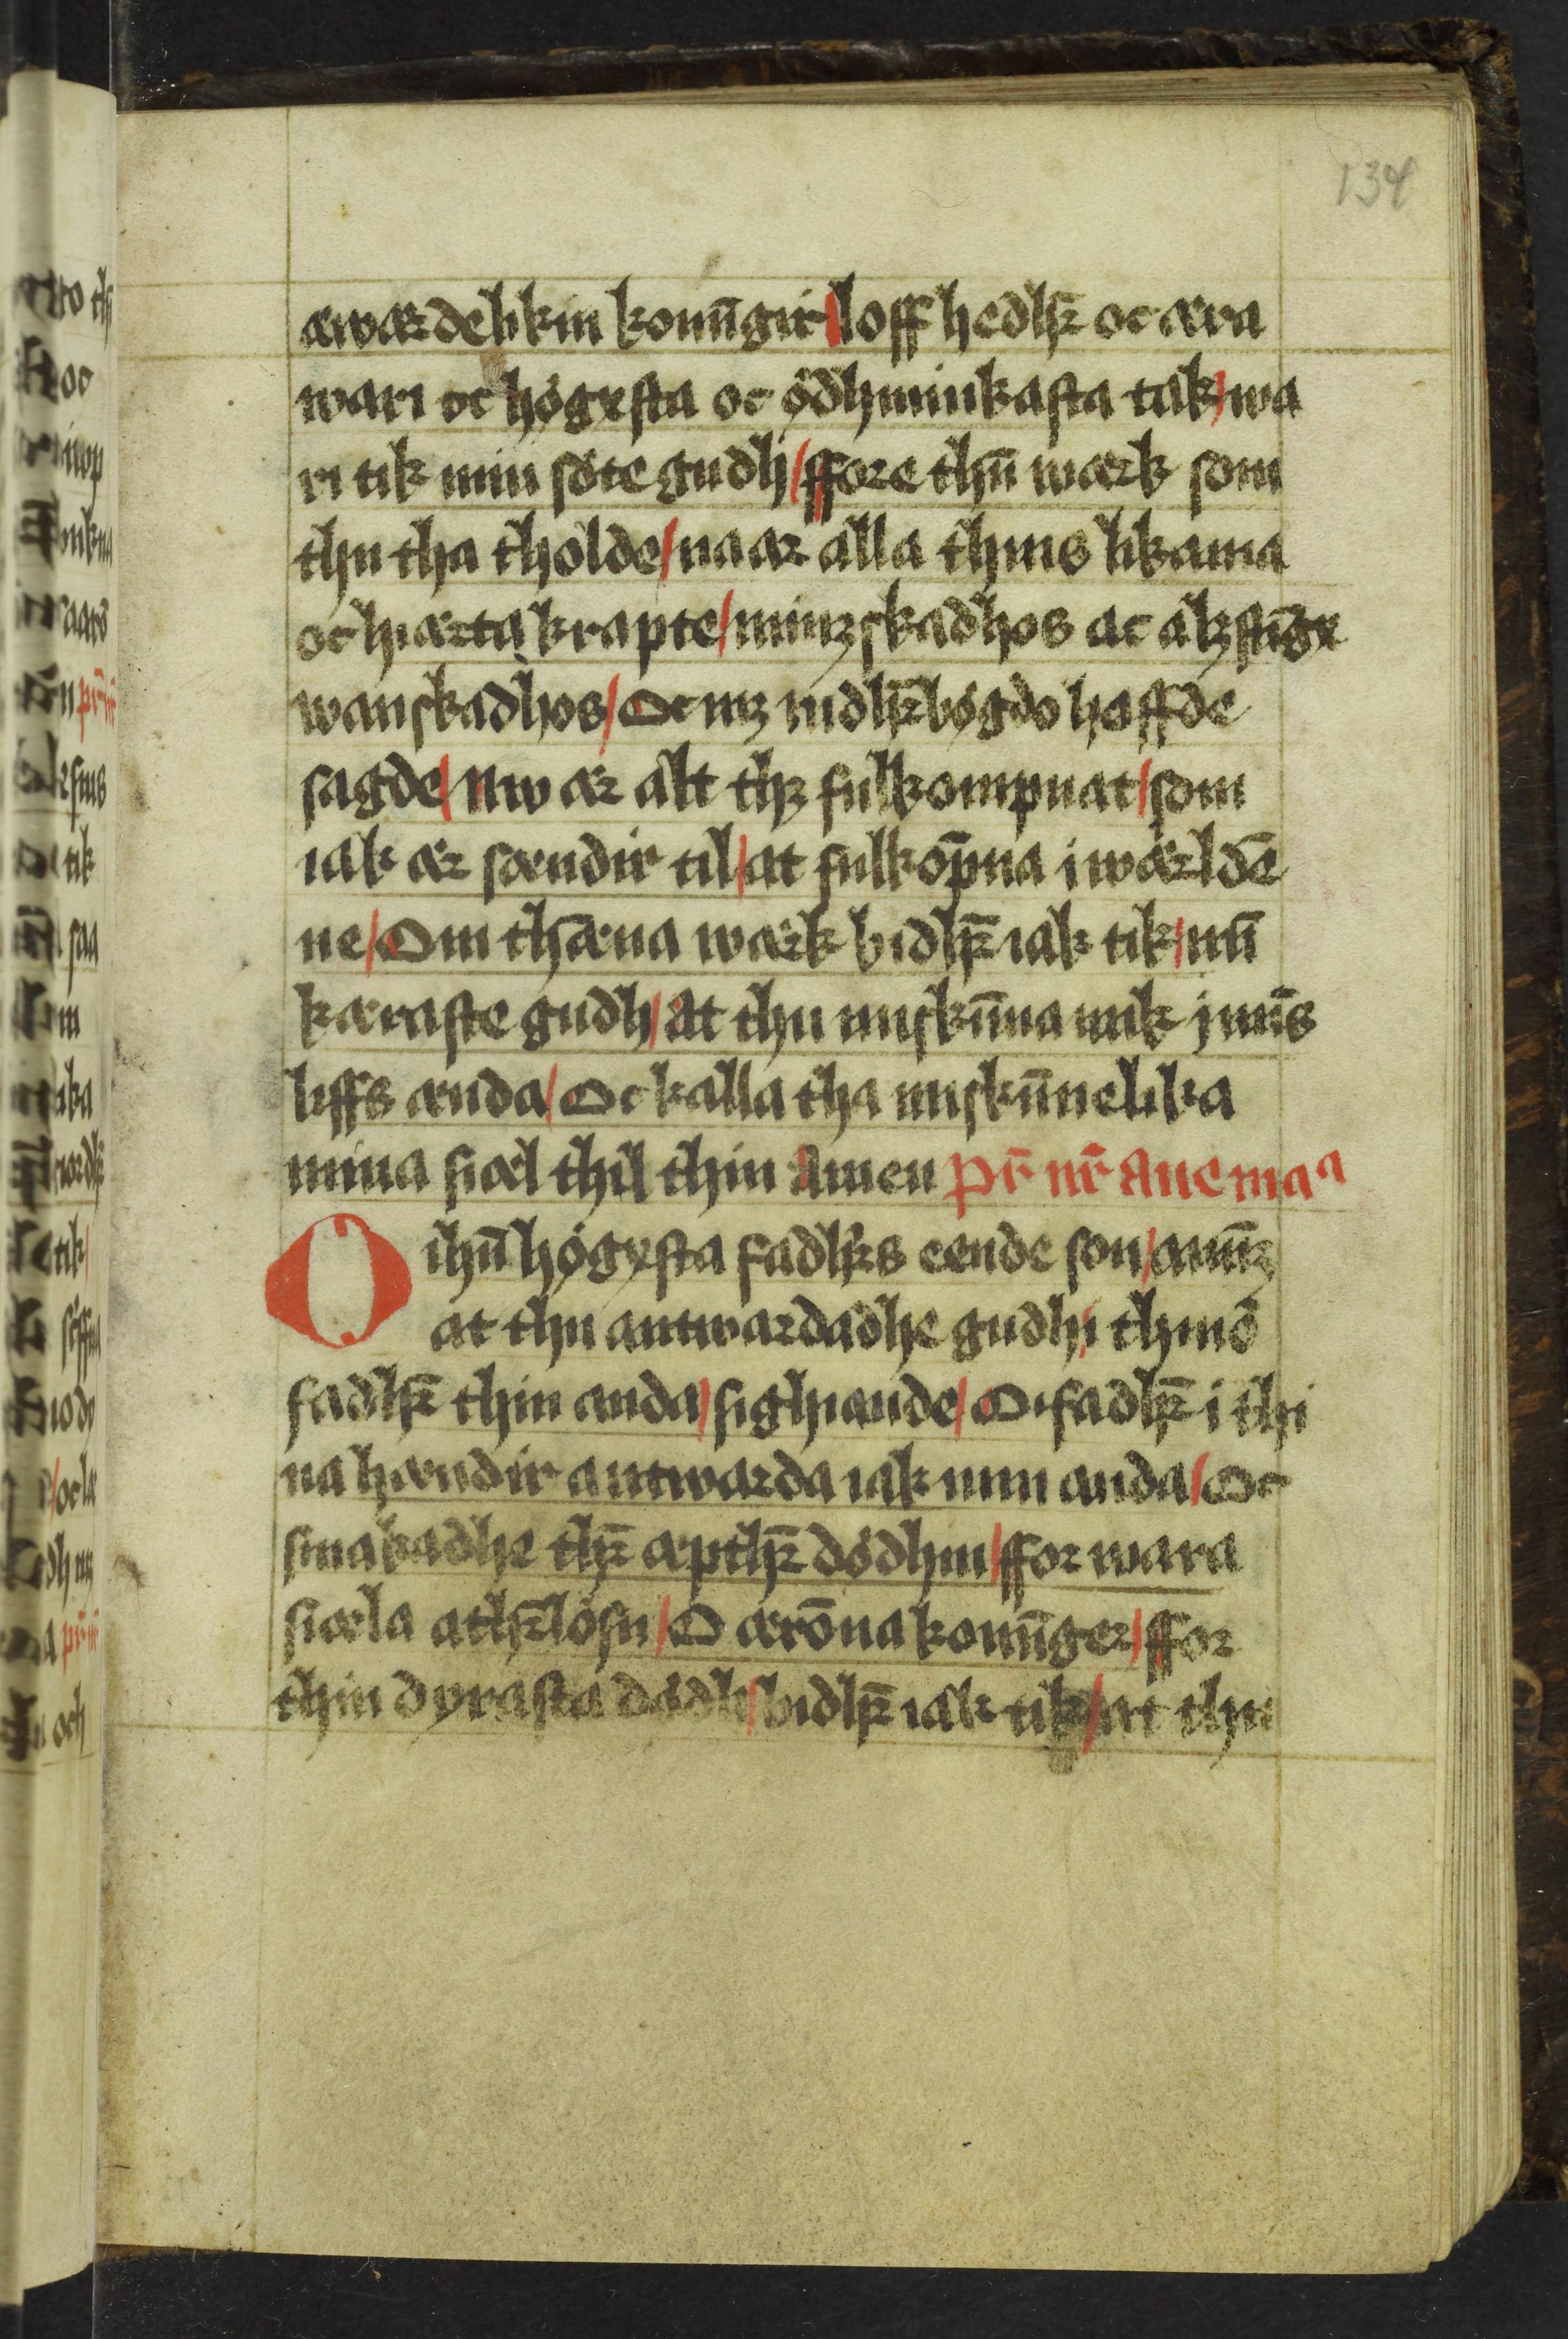 134
æwærdelikin konu̅gir / loff hedh̅r oc æra
wari oc höghxsta oc ödhmiukasta tak / wa
ri tik min söte gudh / ffore thn̅ wærk som
thu tha tholde / naar alla thins likama
oc hiærta krapte / minzskadhos ac alzsti̅gx
wanskadhos / Oc mz nidh̅rbögdo hoffde
sagde / Nw ær alt thz fulkompnat / som
iak ær sændir til / at fulko̅pna i wærlde̅
ne / Om thæ̅na wærk bidh̅r iak tik / mi̅
kæraste gudh / At thu misku̅na mik j mi̅s
liffs ænda / Oc kalla tha misku̅nelika
mina siæl thil thin Amen Pr̅ nr̅ Aue maa
O ihu̅ högxsta fadh̅rs eende son / amī̅z
at thu antwardadhe gudhi thino̅
fadh̅r thin anda / sighiande / O fadh̅r i thi
na hændir antwarda iak min anda / Oc
sina badhe th̅r æpth̅r dödhin / ffor wara
siæla ath̅rlösn / O æro̅na konu̅ger / ffor
thin dyrasta dödh / bidh̅r iak tik / at thu